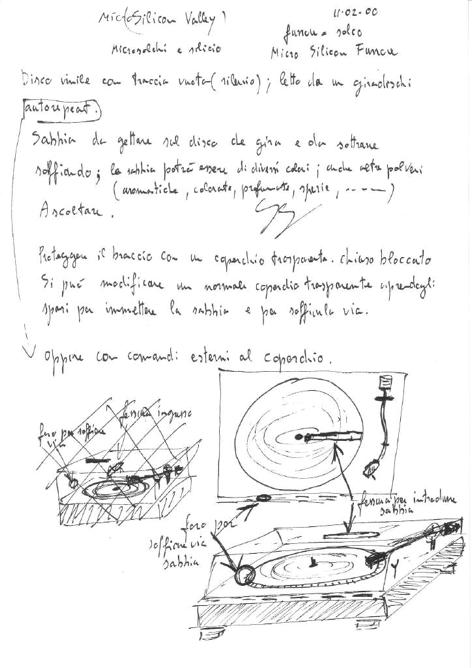 Micro(Silicon Valley)
11-02-00
furrow = solco
Microsolchi e silicio
Micro Silicon Furrow
Disco vinile con traccia vuota (silenzio); letto da un giradischi
autorepeat.
Sabbia da gettare sul disco che gira e da sottrarre
soffiando; la sabbia potrà essere di diversi colori; anche altre polveri
(aromatiche, colorate, profumate, spezie, ----)
Ascoltare.
Proteggere il braccio con un coperchio trasparente. chiuso bloccato
Si può modificare un normale coperchio trasparente aprendogli
spazi per immettere la sabbia e per soffiarla via.
oppure con comandi esterni al coperchio.
foro per soffiare
via
fessura ingresso
fessura per introdurre
sabbia
foro per
soffiare via
sabbia